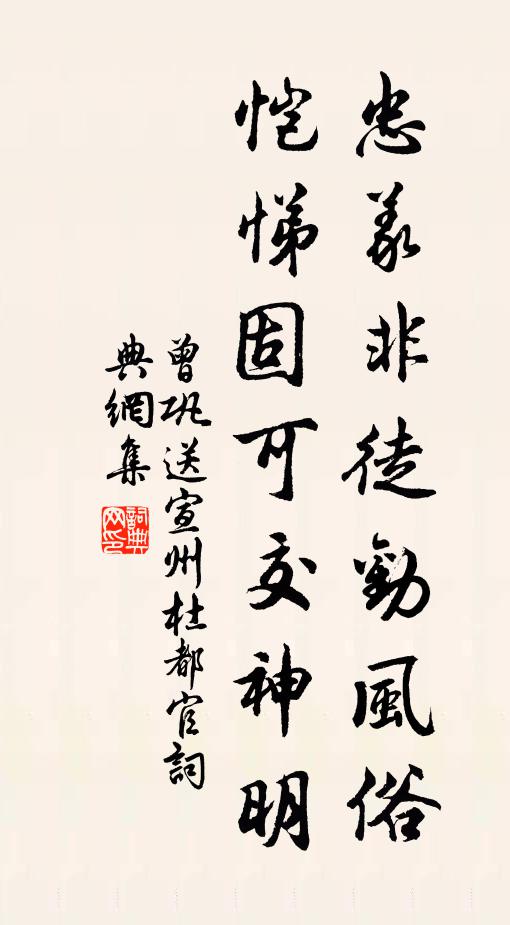 忠義非徒勸風俗
愷悌固可交神明
曾巩送宣州杜都官詞
典網集
詞典
网印